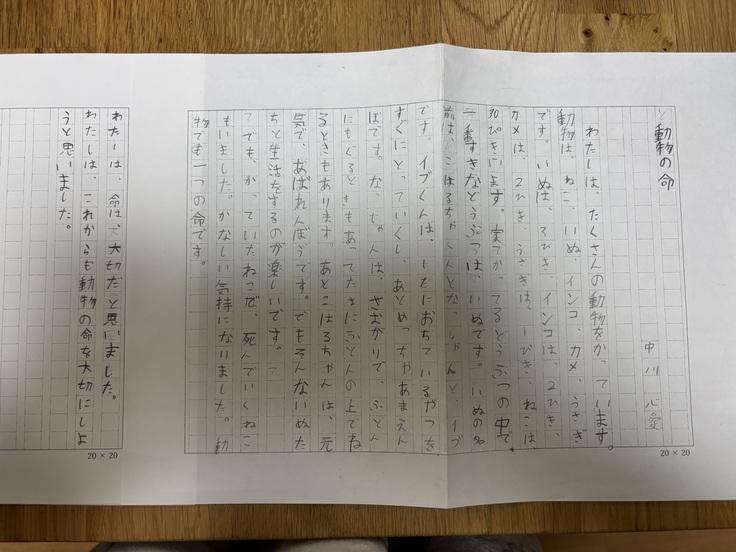 動物の命
中川 心愛
わたしは、たくさんの動物をかっています。
動物は、ねこ、いぬ、インコ、カメ、うさぎ
です。いぬは、3びき、インコは、2ひき、
カメは、2ひき、うさぎは、1ぴき、ねこは、
30ぴきいます。家でかってるどうぶつの中で
一番すきなどうぶつは、いぬです。いぬの名
前は、こはるちゃんとなっしゃんと、イブ
です。イブくんは、したにおちているやつを
すぐにとっていくし、あとめっちゃあまえん
ぼです。なっしゃんは、さむがりで、ふとん
にもぐるときもあってたまにふとんの上でね
るときもあります。あとこはるちゃんは、元
気で、あばれんぼうです。でもそんないぬた
ちと生活をするのが楽しいです。
でも、かっていたねこで、死んでいくねこ
もいました。かなしい気持になりました。動
物でも一つの命です。
わたしは、命は大切だと思いました。
わたしは、これからも動物の命を大切にしよ
うと思いました。
20×20
20×20